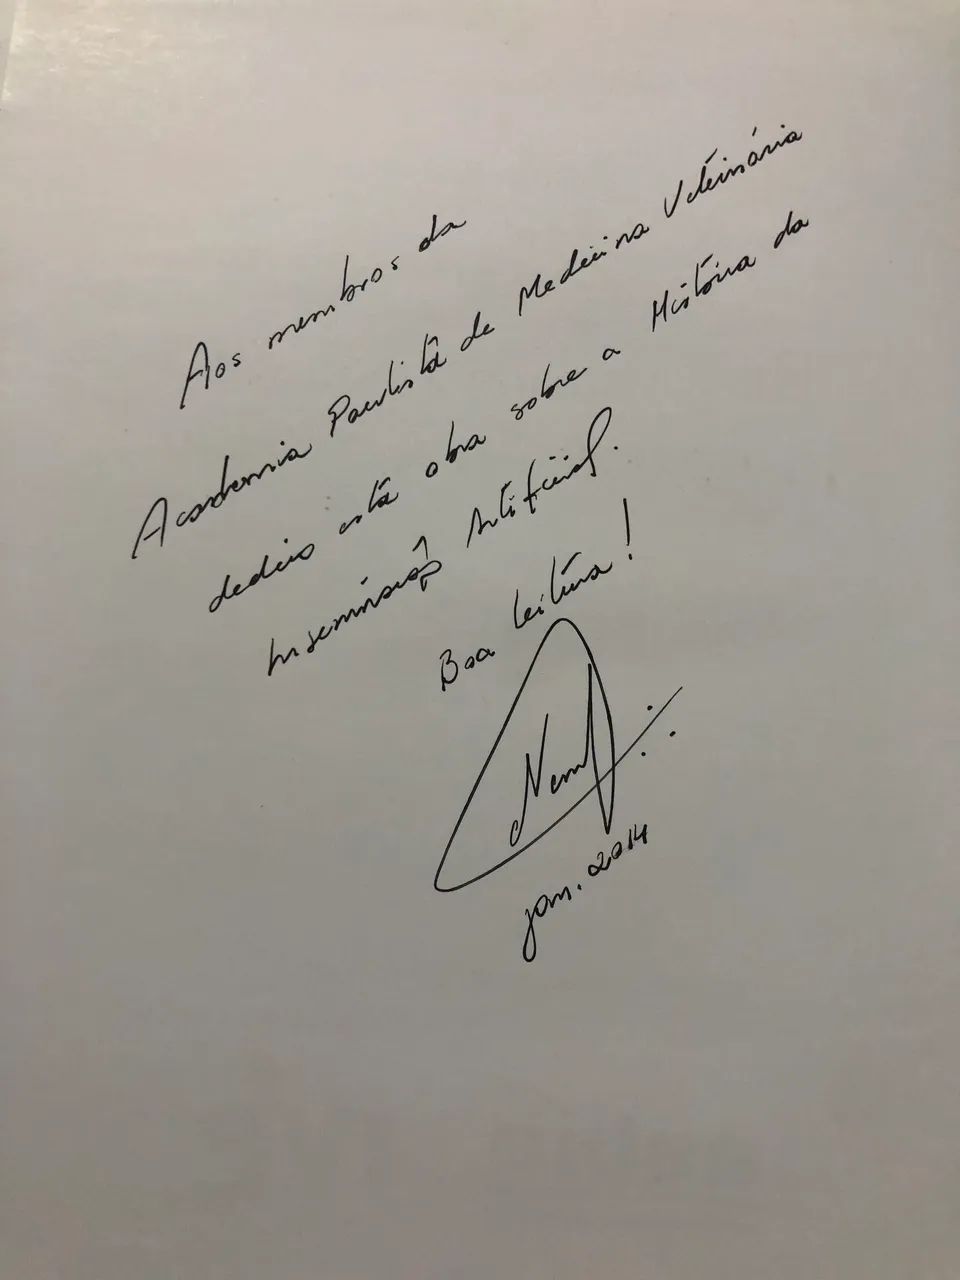 Aos membros da
Academia Paulista de Medicina Veterinária
dedico esta obra sobre a História da
Inseminação Artificial.
Boa leitura!
jan. 2014